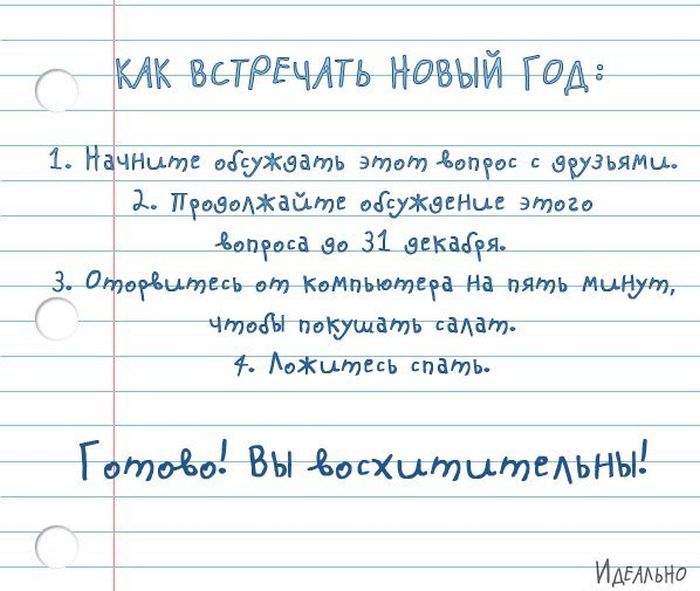 КАК ВСТРЕЧАТЬ НОВЫЙ ГОД:
1. Начните обсуждать этот вопрос с друзьями.
2. Продолжайте обсуждение этого
вопроса до 31 декабря.
3. Оторвитесь от компьютера на пять минут,
чтобы покушать салат.
4. Ложитесь спать.
Готово! Вы восхитительны!
Идеально